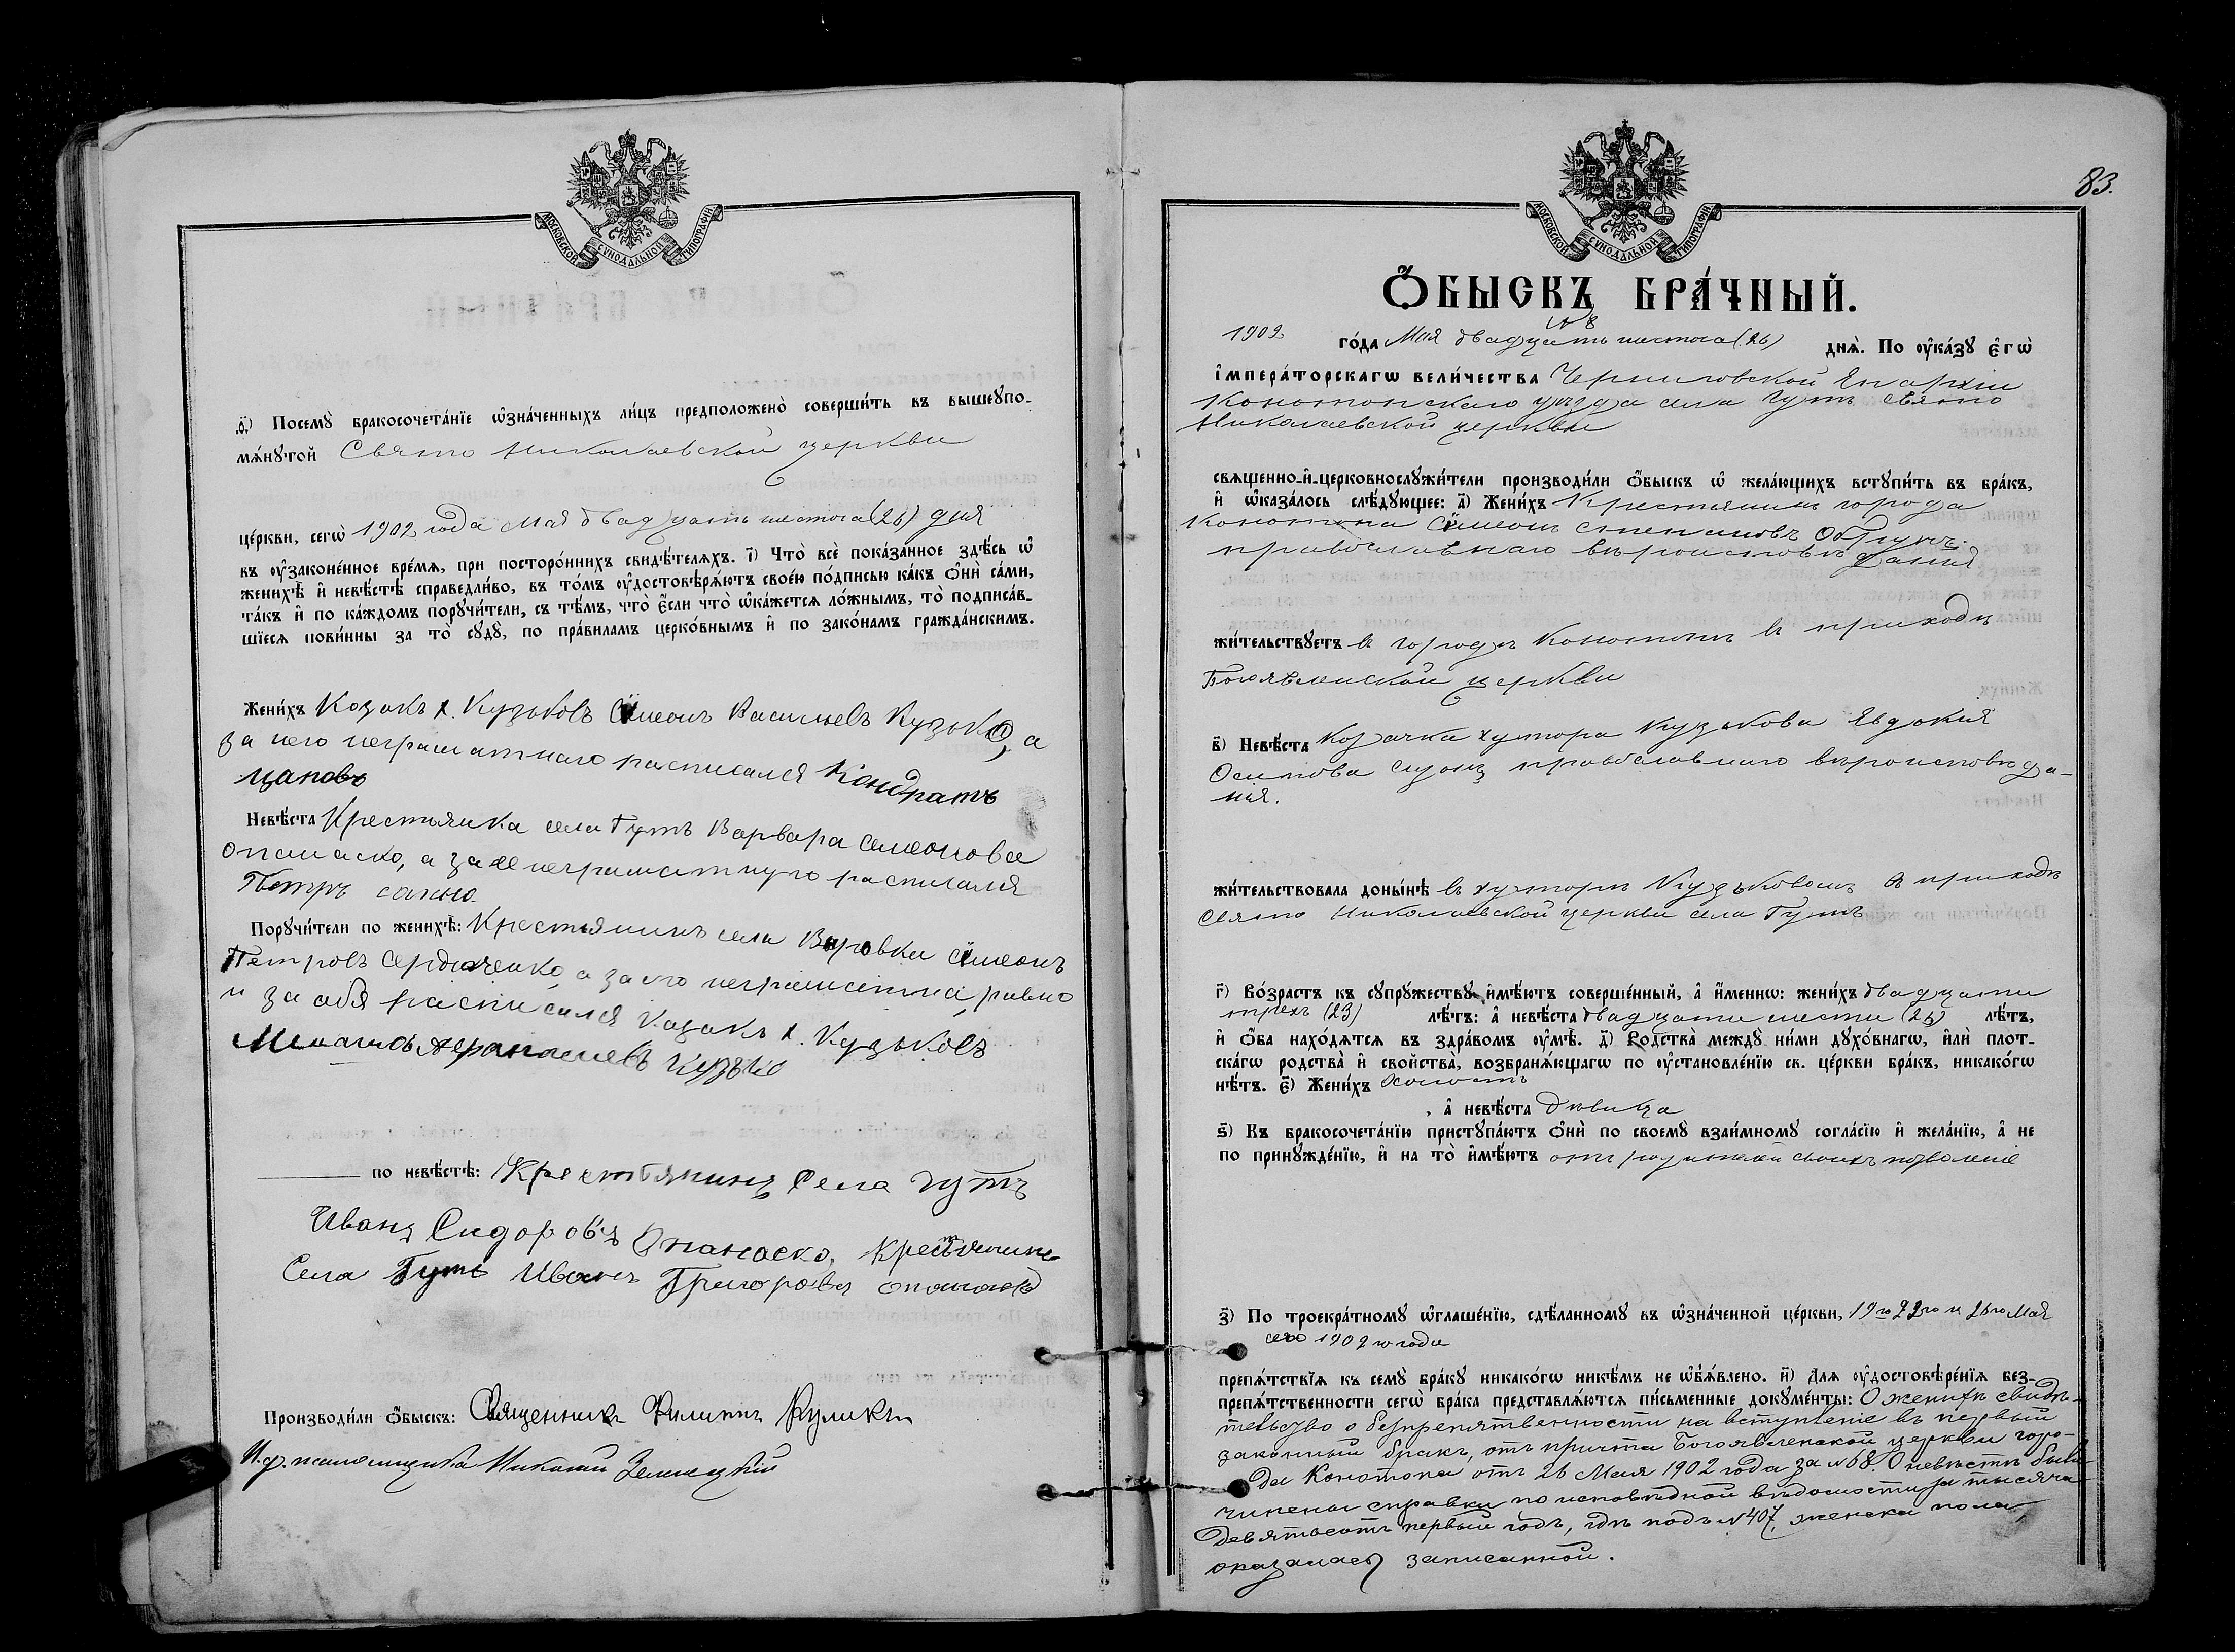 МОСКОВСКОЙ СѴНОДАЛЬНОЙ ТИПОГРАФІИ
ѳ҃) Посемꙋ̀ бракосочета́нїе ѡ҆зна́ченныхъ ли́цъ предположено̀ соверши́ть въ вышеꙋпо-
мѧ́нꙋтой Свято Николаевской церкви
це́ркви, сегѡ̀ 1902 года Мая двадцать шестого (26) дня
въ ᲂу҆зако́ненное вре́мѧ, при посторо́ннихъ свидѣ́телѧхъ. і҃) Что̀ всѐ пока́занное здѣ́сь ѡ҆
женихѣ̀ и҆ невѣ́стѣ справедли́во, въ то́мъ ᲂу҆достовѣрѧ́ютъ свое́ю по́дписью ка́къ ѻ҆нѝ са́ми,
та́къ и҆ по ка́ждомъ порꙋчи́тели, съ тѣ́мъ, что̀ є҆́сли что̀ ѡ҆ка́жетсѧ ло́жнымъ, то̀ подписа́в-
шїесѧ пови́нны за то̀ сꙋдꙋ̀, по пра́виламъ церко́внымъ и҆ по зако́намъ гражда́нскимъ.
Жени́хъ Козакъ х. Кузьковъ Сѵмеонъ Васильевъ Кузько, а
за него неграматнаго расписался Кондратъ
цаповъ
Невѣ́ста Крестьянка села Гутъ Варвара Симеонова
Опанаско, а за ее неграматную расписался
Петръ
Порꙋчи́тели по женихѣ̀: Крестьянинъ села Вировки Сѵмеонъ
Петровъ Сердюченко, а за его неграматна, равно
и за себя расписался Казакъ х. Кузьковъ
Афанасиевъ Кузько
по невѣ́стѣ: Крестьянинъ Села Гутъ
Иванъ Сидоровъ Опанаско, Крестьянинъ
Села Гутъ Иванъ Григоровъ Опанаско
Производи́ли ѻ҆́быскъ: Священникъ Филиппъ Куликъ
И.д. псаломщика Николай
83.
МОСКОВСКОЙ СѴНОДАЛЬНОЙ ТИПОГРАФІИ
Ѻ҆́БЫСКЪ БРА́ЧНЫЙ.
№ 8
1902 го́да Мая двадцать шестого (26) днѧ̀. По ᲂу҆ка́зꙋ є҆гѡ̀
і҆мпера́торскагѡ вели́чества Черниговской Епархіи
Конотопскаго уѣзда села Гутъ Свято
Николаевской церкви
свѧщенно-и҆-церковнослꙋжи́тели производи́ли ѻ҆́быскъ ѡ҆ жела́ющихъ встꙋпи́ть въ бра́къ,
и҆ ѡ҆каза́лось слѣ́дꙋющее: а҃) Жени́хъ Крестьянинъ города
Конотопа Сѵмеонъ Степановъ
православнаго вѣроисповѣданія
жи́тельствꙋетъ въ городѣ Конотопѣ въ приходѣ
Богоявленской церкви
в҃) Невѣ́ста Козачка хутора Кузькова Евдокія
Осипова православнаго вѣроисповѣда-
нія.
жи́тельствовала доны́нѣ въ хуторѣ Кузьковомъ въ приходѣ
Свято Николаевской церкви села Гутъ
г҃) Во́зрастъ къ сꙋпрꙋ́жествꙋ и҆мѣ́ютъ соверше́нный, а҆ и҆́меннѡ: жени́хъ двадцати
трехъ (23) лѣ́тъ: а҆ невѣ́ста двадцати шести (26) лѣ́тъ,
и҆ ѻ҆́ба нахо́дѧтсѧ въ здра́вомъ ᲂу҆мѣ̀. д҃) Родства̀ междꙋ̀ ни́ми дꙋхо́внагѡ, и҆лѝ плот-
ска́гѡ родства̀ и҆ сво́йства̀, возбранѧ́ющагѡ по ᲂу҆становле́нїю св. це́ркви бра́къ, никако́гѡ
нѣ́тъ. є҃) Жени́хъ Холостъ
, а҆ невѣ́ста Дѣвица
ѕ҃) Къ бракосочета́нїю пристꙋпа́ютъ ѻ҆нѝ по своемꙋ̀ взаи́мномꙋ согла́сїю и҆ жела́нїю, а҆ не
по принꙋжде́нїю, и҆ на то̀ и҆мѣ́ютъ отъ родителей своихъ позволеніе
з҃) По троекра́тномꙋ ѡ҆глаше́нїю, сдѣ́ланномꙋ въ ѡ҆зна́ченной це́ркви, 19го 23го и 26го Мая
сего 1902го года
препѧ́тствїѧ къ семꙋ̀ бра́кꙋ никако́гѡ никѣ́мъ не ѡ҆б̾ѧ́влено. и҃) Для ᲂу҆достовѣре́нїѧ без-
препѧ́тственности сегѡ̀ бра́ка представлѧ́ютсѧ пи́сьменные докꙋме́нты: О женихѣ свидѣ-
тельство о безпрепятственности на вступленіе въ первый
законный бракъ, отъ причта Богоявленской церкви горо-
да Конотопа отъ 26 Мая 1902 года за №68. О невѣстѣ были
чинены справки по исповѣдной вѣдомости за тысяча
Девятьсотъ первый годъ, гдѣ подъ №407, женска пола,
оказалась записанной.